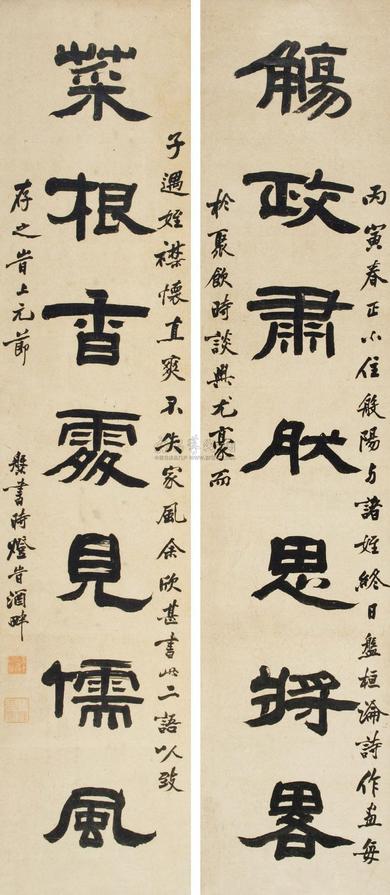 丙寅春正小住般陽与諸姪終日盤桓論詩作畫每
觴政肅肰思將畧
於聚飲時談興尤豪而
子遇姪襟懷直爽不失家風余欣甚書此二語以致
菜根香處見儒風
存之旹上元節
書時燈旹酒畔